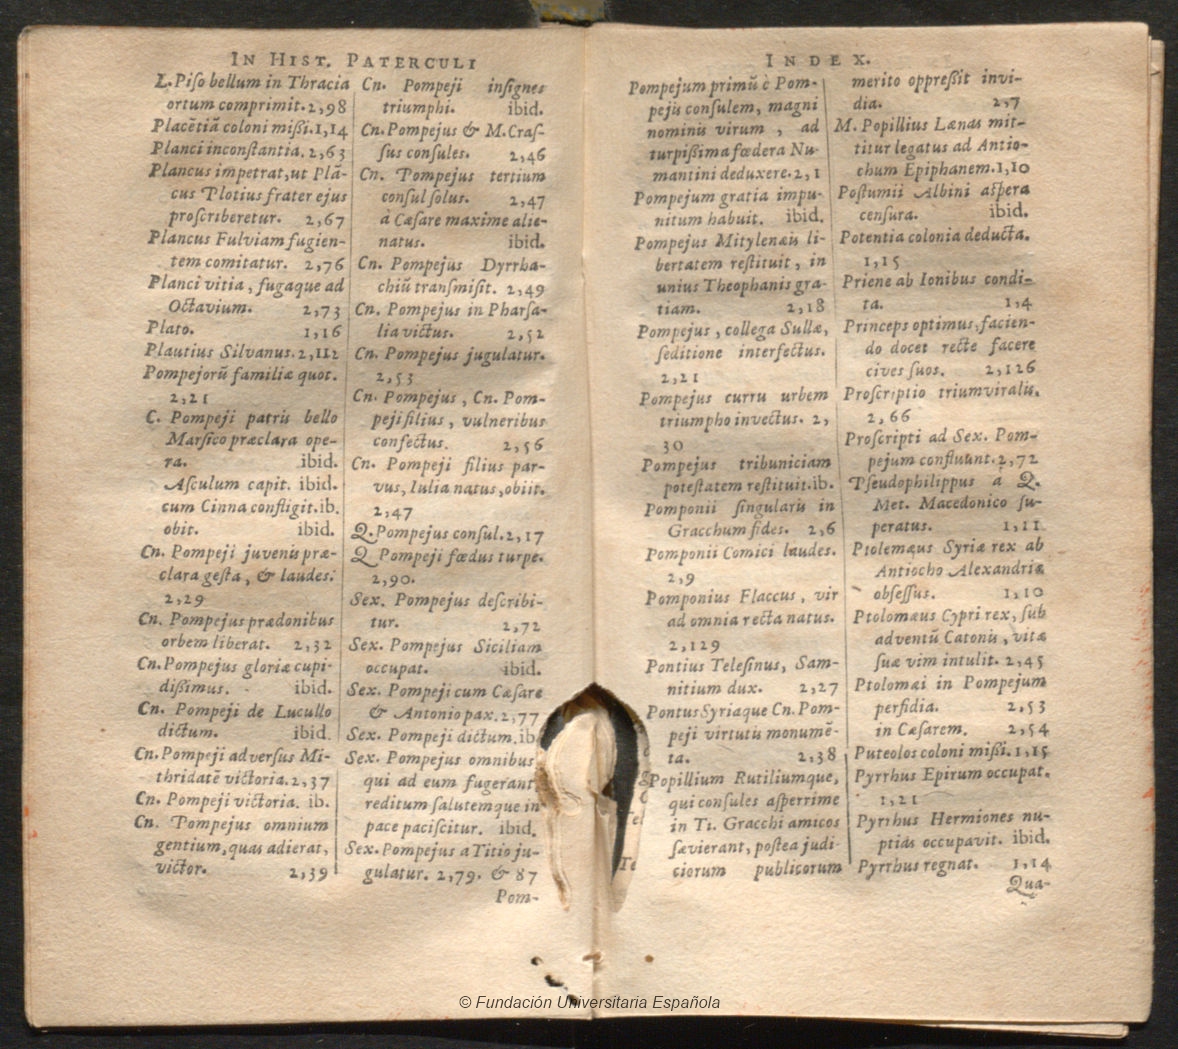 IN HIST. PATERCULI
L. Piſo bellum in Thracia
ortum comprimit. 2,98
Placẽtiã coloni miſſi. 1,14
Planci inconſtantia. 2,63
Plancus impetrat, ut Plã-
cus Plotius frater ejus
proſcriberetur. 2,67
Plancus Fulviam fugien-
tem comitatur. 2,76
Planci vitia, fugaque ad
Octavium. 2,73
Plato. 1,16
Plautius Silvanus. 2,112
Pompejorũ familiæ quot.
2,21
C. Pompeji patris bello
Marſico præclara ope-
ra. ibid.
Aſculum capit. ibid.
cum Cinna confligit. ib.
obit. ibid.
Cn. Pompeji juvenis præ-
clara geſta, & laudes.
2,29
Cn. Pompejus prædonibus
orbem liberat. 2,32
Cn. Pompejus gloriæ cupi-
diſſimus. ibid.
Cn. Pompeji de Lucullo
dictum. ibid.
Cn. Pompeji adverſus Mi-
thridatẽ victoria. 2,37
Cn. Pompeji victoria. ib.
Cn. Pompejus omnium
gentium, quas adierat,
victor. 2,39
Cn. Pompeji inſignes
triumphi. ibid.
Cn. Pompejus & M. Craſ-
ſus conſules. 2,46
Cn. Pompejus tertium
conſul ſolus. 2,47
à Cæſare maxime alie-
natus. ibid.
Cn. Pompejus Dyrrha-
chiũ tranſmiſit. 2,49
Cn. Pompejus in Pharſa-
lia victus. 2,52
Cn. Pompejus jugulatur.
2,53
Cn. Pompejus, Cn. Pom-
peji filius, vulneribus
confectus. 2,56
Cn. Pompeji filius par-
vus, Iulia natus, obiit.
2,47
Q. Pompejus conſul. 2,17
Q Pompeji fœdus turpe.
2,90.
Sex. Pompejus deſcribi-
tur. 2,72
Sex. Pompejus Siciliam
occupat. ibid.
Sex. Pompeji cum Cæſare
& Antonio pax. 2,77
Sex. Pompeji dictum. ib.
Sex. Pompejus omnibus
qui ad eum fugerant
reditum ſalutemque in
pace paciſcitur. ibid.
Sex. Pompejus a Titio ju-
gulatur. 2,79. & 87
Pom-
INDEX.
Pompejum primũ è Pom-
pejis conſulem, magni
nominis virum, ad
turpiſſima fœdera Nu-
mantini deduxere. 2,1
Pompejum gratia impu-
nitum habuit. ibid.
Pompejus Mitylenæis li-
bertatem reſtituit, in
unius Theophanis gra-
tiam. 2,18
Pompejus, collega Sullæ,
ſeditione interfectus.
2,21
Pompejus curru urbem
triumpho invectus. 2,
30
Pompejus tribuniciam
poteſtatem reſtituit. ib.
Pomponii ſingularis in
Gracchum fides. 2,6
Pomponii Comici laudes.
2,9
Pomponius Flaccus, vir
ad omnia recta natus.
2,129
Pontius Teleſinus, Sam-
nitium dux. 2,27
Pontus Syriaque Cn. Pom-
peji virtutis monumẽ-
ta. 2,38
Popillium Rutiliumque,
qui conſules aſperrime
in Ti. Gracchi amicos
ſævierant, poſtea judi
ciorum publicorum
merito oppreſſit invi-
dia. 2,7
M. Popillius Lænas mit-
titur legatus ad Antio-
chum Epiphanem. 1,10
Poſtumii Albini aſpera
cenſura. ibid.
Potentia colonia deducta.
1,15
Priene ab Ionibus condi-
ta. 1,4
Princeps optimus, facien-
do docet recte facere
cives ſuos. 2,126
Proſcriptio triumviralis.
2,66
Proſcripti ad Sex. Pom-
pejum confluunt. 2,72
Pſeudophilippus à Q.
Met. Macedonico ſu-
peratus. 1,11
Ptolemæus Syriæ rex ab
Antiocho Alexandriæ
obſeſſus. 1,10
Ptolomæus Cypri rex, ſub
adventũ Catonis, vitæ
ſuæ vim intulit. 2,45
Ptolomæi in Pompejum
perfidia. 2,53
in Cæſarem. 2,54
Puteolos coloni miſſi. 1,15
Pyrrhus Epirum occupat.
1,21
Pyrrhus Hermiones nu-
ptias occupavit. ibid.
Pyrrhus regnat. 1,14
Qua-
© Fundación Universitaria Española